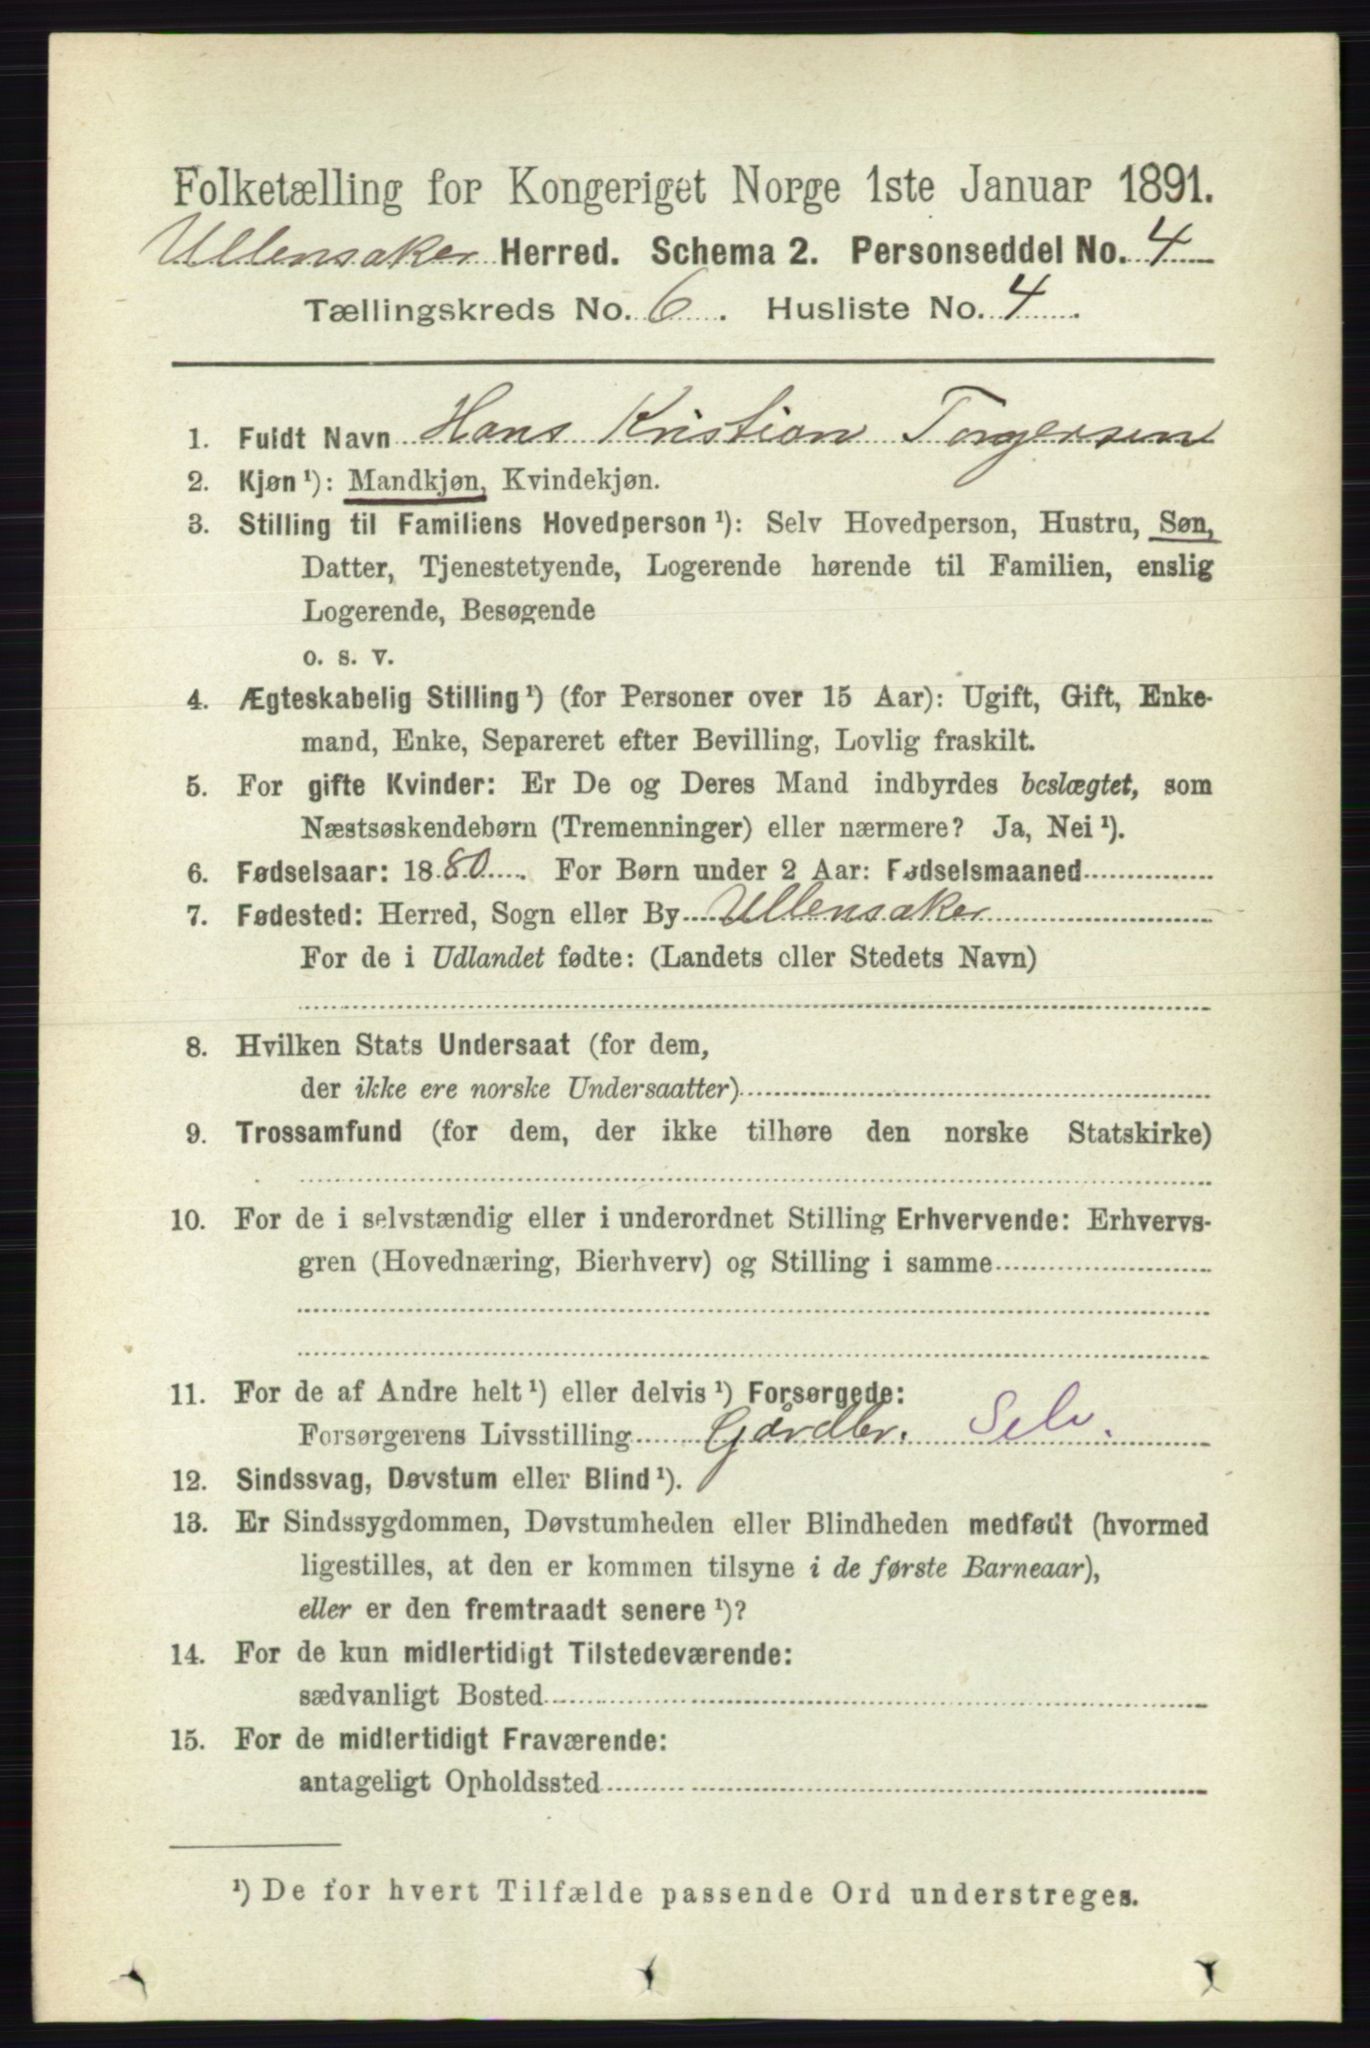 Folketælling for Kongeriget Norge 1ste Januar 1891.
Ullensaker Herred. Schema 2. Personseddel No. 4
Tællingskreds No. 6. Husliste No. 4.
1. Fuldt Navn Hans Kristian Torgersen
2. Kjøn ¹): Mandkjøn, Kvindekjøn.
3. Stilling til Familiens Hovedperson ¹): Selv Hovedperson, Hustru, Søn,
Datter, Tjenestetyende, Logerende hørende til Familien, enslig
Logerende, Besøgende
o. s. v.
4. Ægteskabelig Stilling ¹) (for Personer over 15 Aar): Ugift, Gift, Enke-
mand, Enke, Separeret efter Bevilling, Lovlig fraskilt.
5. For gifte Kvinder: Er De og Deres Mand indbyrdes beslægtet, som
Næstsøskendebørn (Tremenninger) eller nærmere? Ja, Nei ¹).
6. Fødselsaar: 1880. For Børn under 2 Aar: Fødselsmaaned
7. Fødested: Herred, Sogn eller By Ullensaker
For de i Udlandet fødte: (Landets eller Stedets Navn)
8. Hvilken Stats Undersaat (for dem,
der ikke ere norske Undersaatter)
9. Trossamfund (for dem, der ikke tilhøre den norske Statskirke)
10. For de i selvstændig eller i underordnet Stilling Erhvervende: Erhvervs-
gren (Hovednæring, Bierhverv) og Stilling i samme
11. For de af Andre helt ¹) eller delvis ¹) Forsørgede:
Forsørgerens Livsstilling Gårdbr. Selv.
12. Sindssvag, Døvstum eller Blind ¹).
13. Er Sindssygdommen, Døvstumheden eller Blindheden medfødt (hvormed
ligestilles, at den er kommen tilsyne i de første Barneaar),
eller er den fremtraadt senere ¹)?
14. For de kun midlertidigt Tilstedeværende:
sædvanligt Bosted
15. For de midlertidigt Fraværende:
antageligt Opholdssted
¹) De for hvert Tilfælde passende Ord understreges.